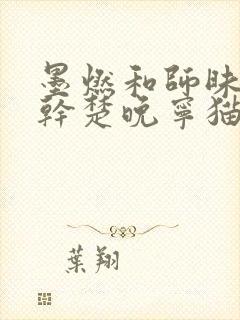 墨燃和師昧
幹楚晚寧猫
葉翔